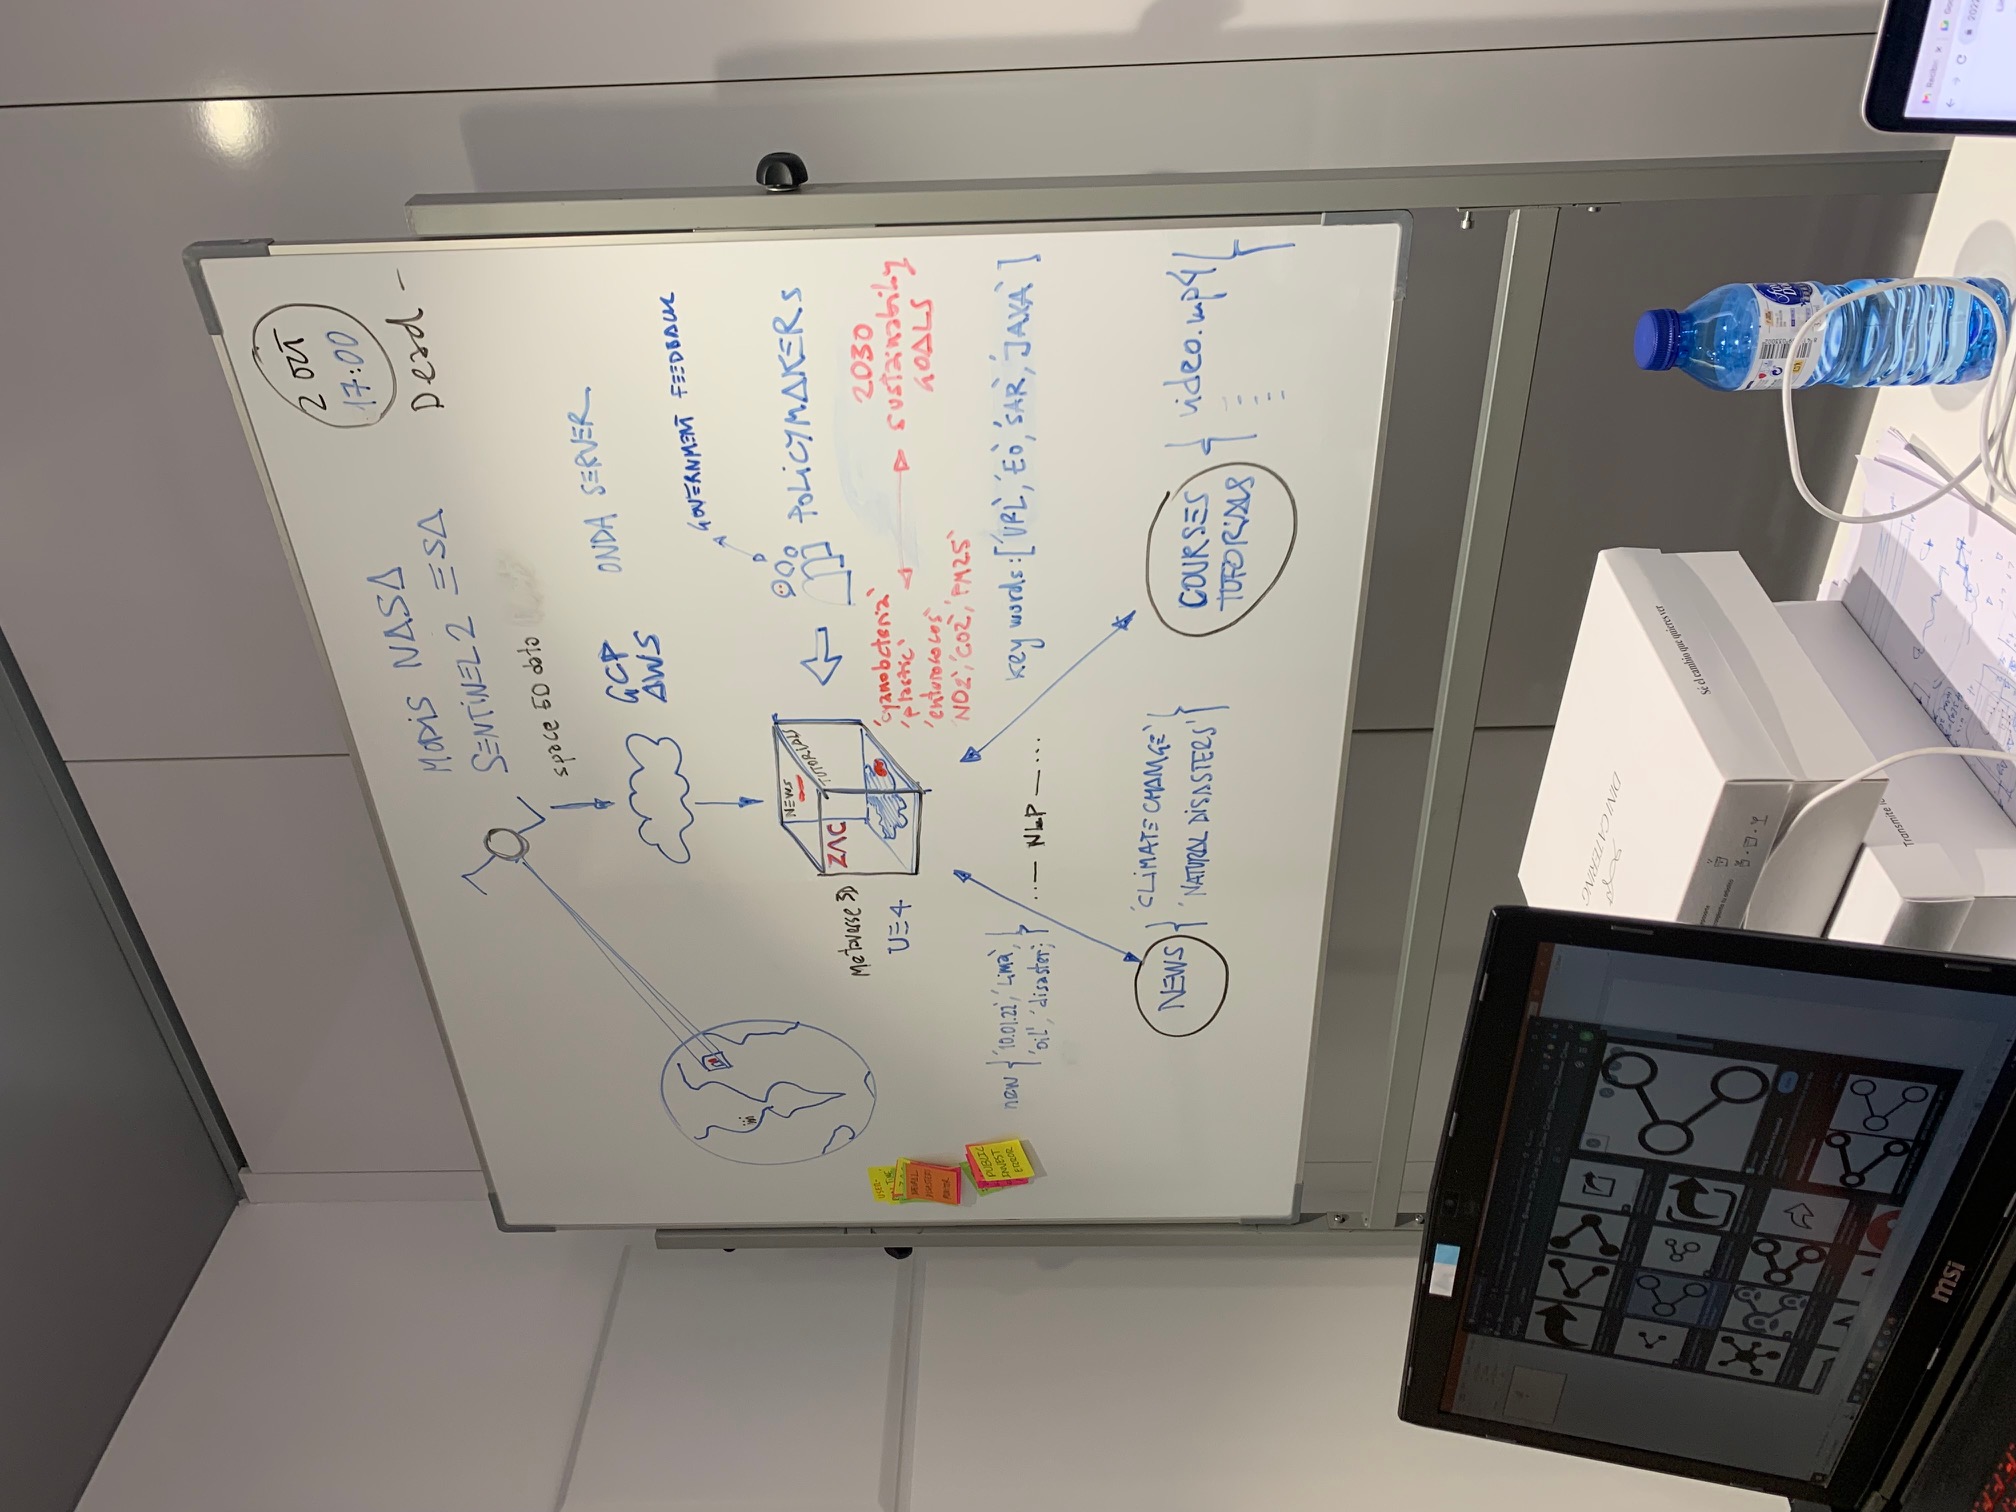 2 OCT
17:00
Dead-
MODIS NASA
SENTINEL 2 ESA
space EO data
GCP
AWS
ONDA SERVER
GOVERNMENT FEEDBACK
POLICYMAKERS
NEWS
TUTORIALS
ZAC
Metaverse 3D
UE4
'cyanobcteria'
'plastic'
'enturococos'
'NO2', 'CO2', 'PM25'
2030
sustainability
GOALS
PUBLIC
INVEST
ERROR
new { '10.01.22', 'Lima',
'oil', 'disaster; }
··· — NLP — ···
key words: ['URL', 'EO', 'SAR', 'JAXA' ]
NEWS
'CLIMATE CHANGE'
'NATURAL DISASTERS'
COURSES
TUTORIALS
video.mp4
Google
msi
DINI CATTERING
Sé el cambio que quieres ver
Transmite